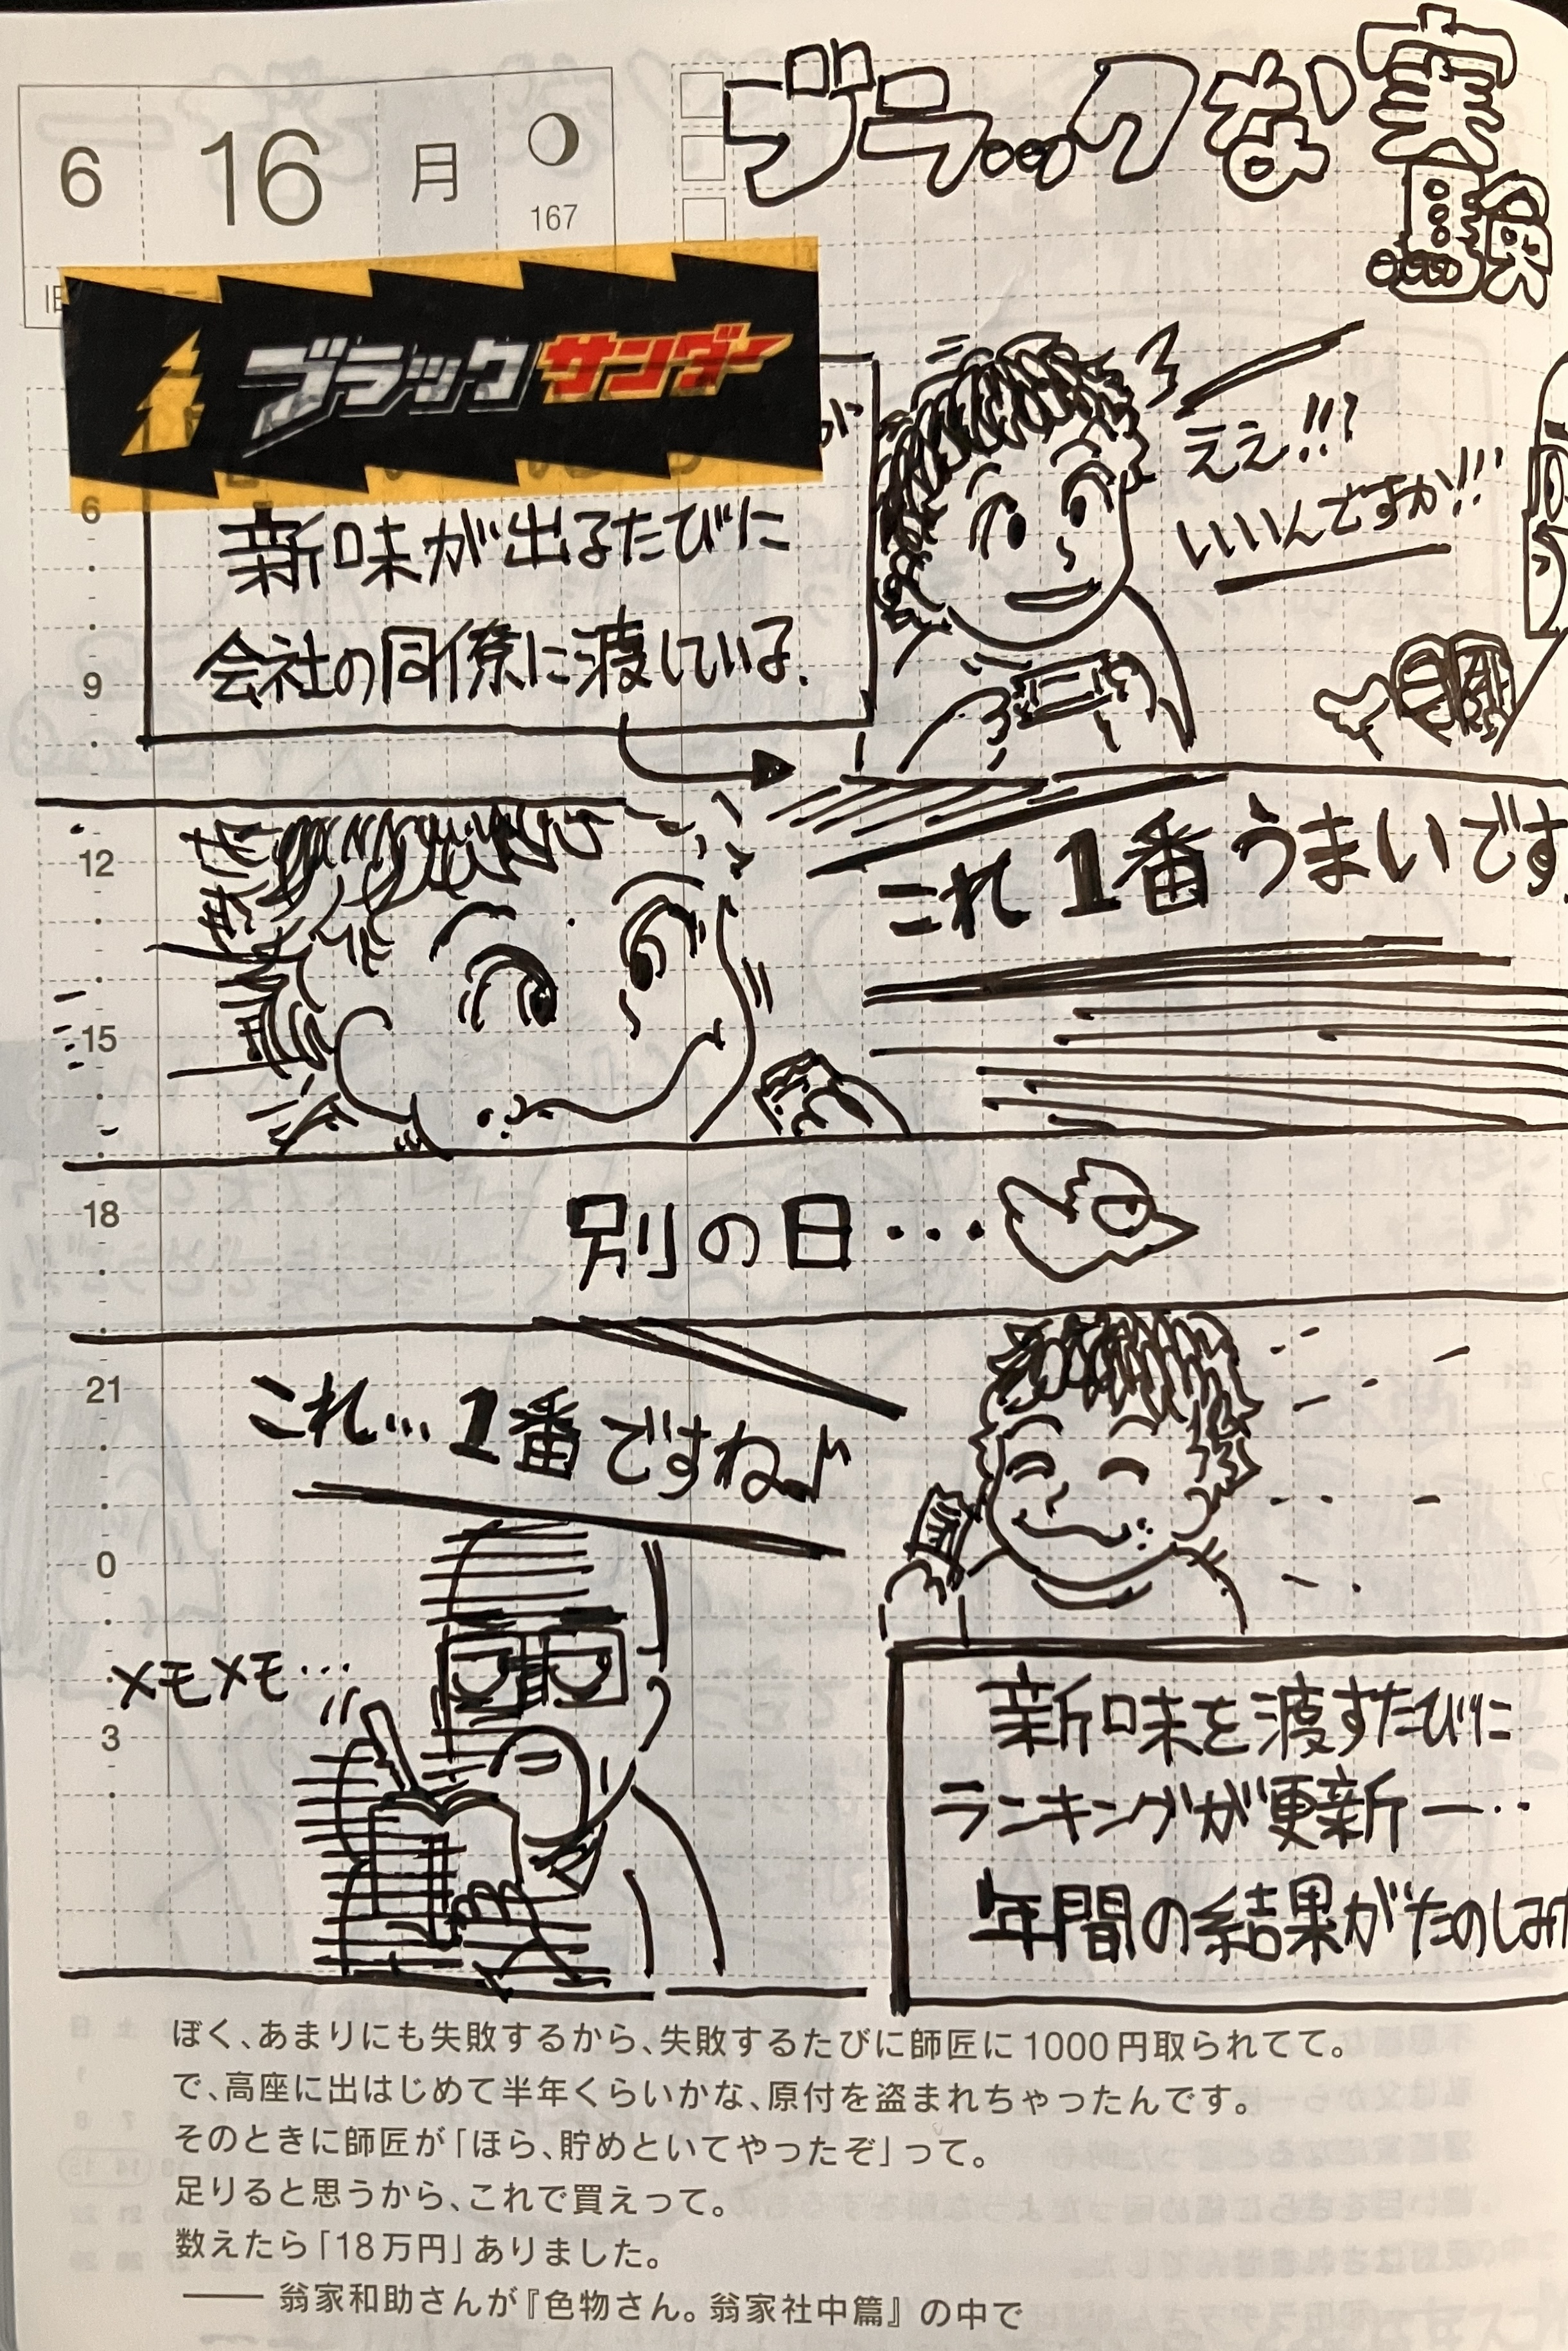 6
16
月
167
ブラックな実
ブラックサンダー
新味が出るたびに
会社の同僚に渡している.
ええ!!?
いいんですか!!!
これ1番うまいです.
別の日・・・
これ…1番ですね♪
メモメモ…
新味を渡すたびに
ランキングが更新ー‥
年間の結果がたのしみ
6
9
12
15
18
21
0
3
ぼく、あまりにも失敗するから、失敗するたびに師匠に1000円取られてて。
で、高座に出はじめて半年くらいかな、原付を盗まれちゃったんです。
そのときに師匠が「ほら、貯めといてやったぞ」って。
足りると思うから、これで買えって。
数えたら「18万円」ありました。
―― 翁家和助さんが『色物さん。翁家社中篇』の中で